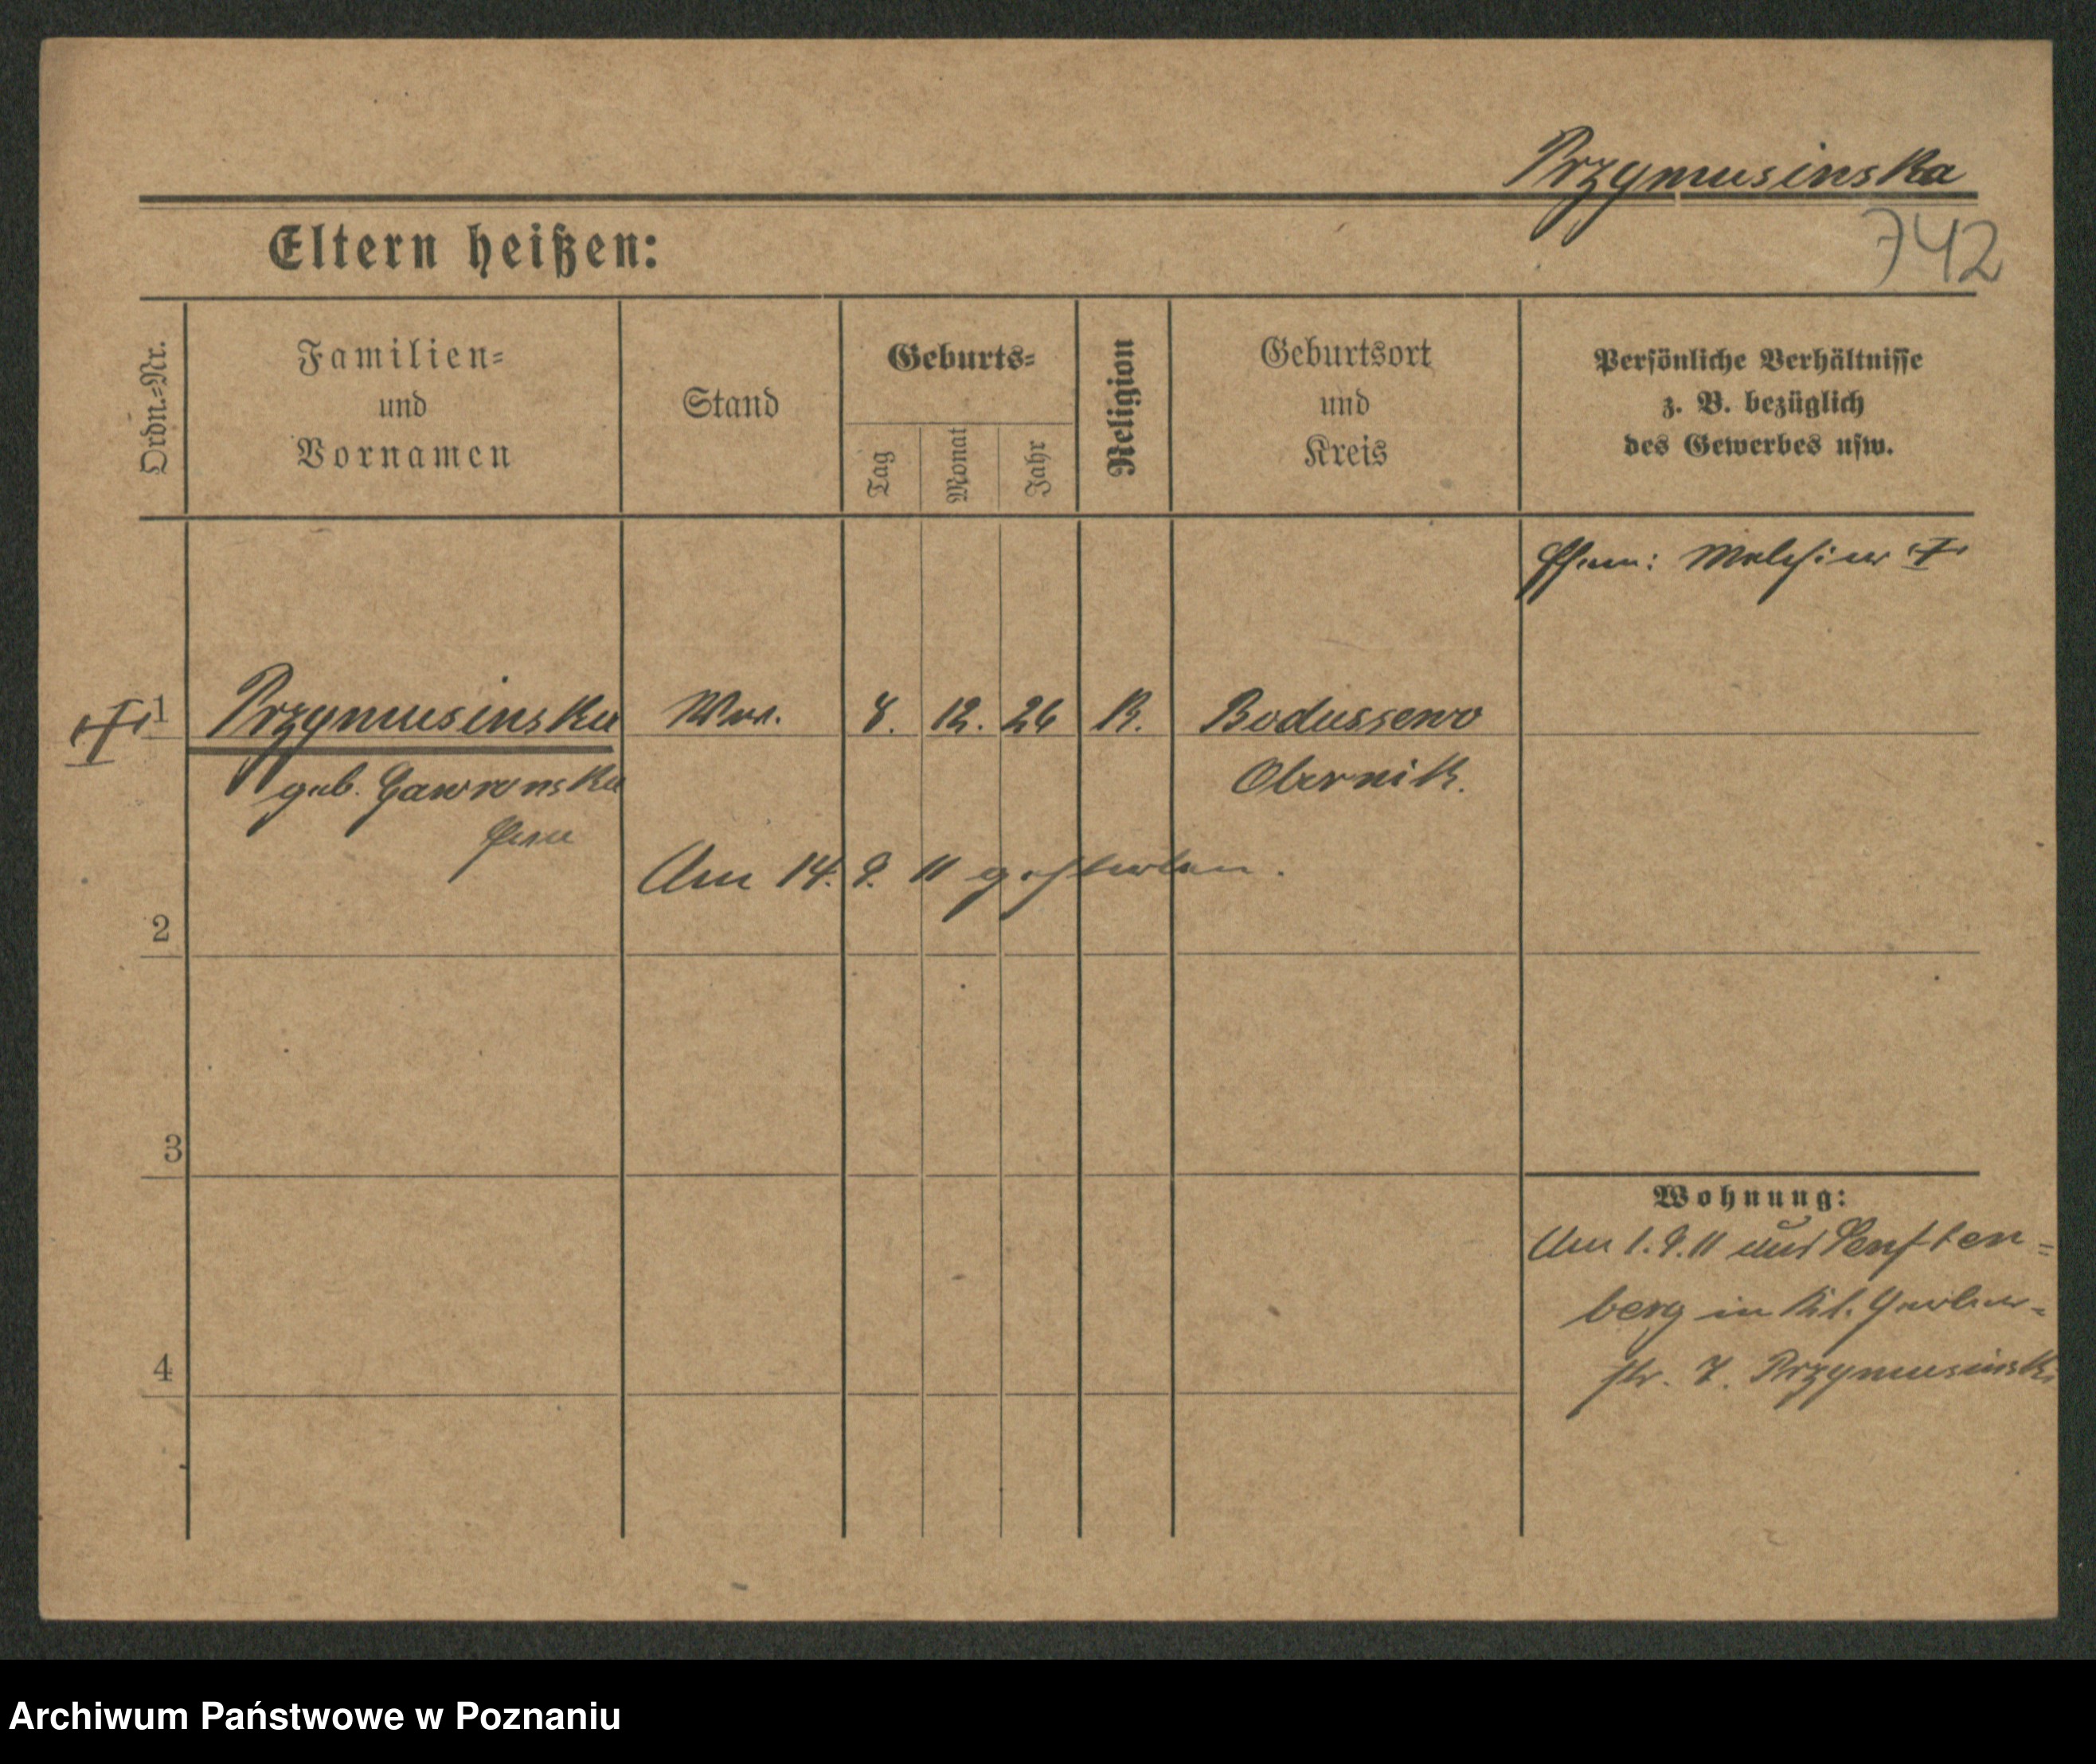 Przymusinska
742
Eltern heißen:
Ordn.=Nr.
Familien=
und
Vornamen
Stand
Geburts=
Tag
Monat
Jahr
Religion
Geburtsort
und
Kreis
Persönliche Verhältnisse
z. B. bezüglich
des Gewerbes usw.
Ehem: Melchior
1 Przymusinska Ww. 8. 12. 26 K. Bodussewo
geb. Gawronska Obernik.
Am 14. 9. 11 gestorben.
2
3
Wohnung:
Am 1. 9. 11 aus Senften=
berg in Kl. Gerber=
4
str. 7. Przymusinski
Archiwum Państwowe w Poznaniu